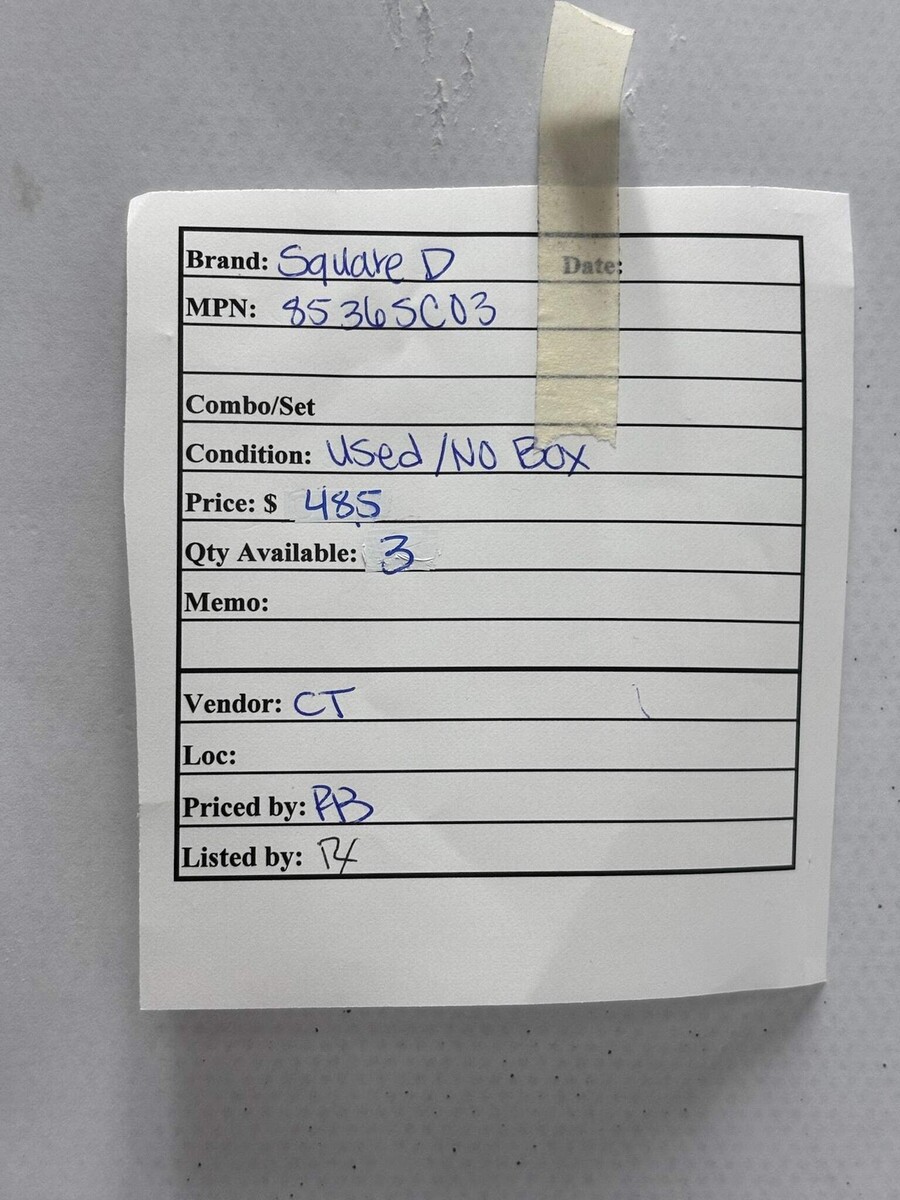 Brand: Square D Date:
MPN: 8536SC03
Combo/Set
Condition: Used/No Box
Price: $ 485
Qty Available: 3
Memo:
Vendor: CT
Loc:
Priced by: RB
Listed by: